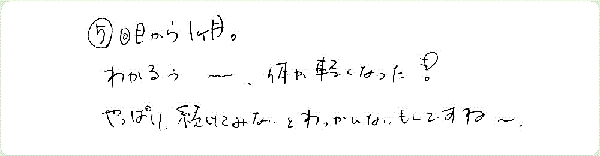 ⑤回目から1ヶ月。
わかるぅ〜、何か軽くなった！
やっぱり、続けてみないとわっかんないもんですね〜。